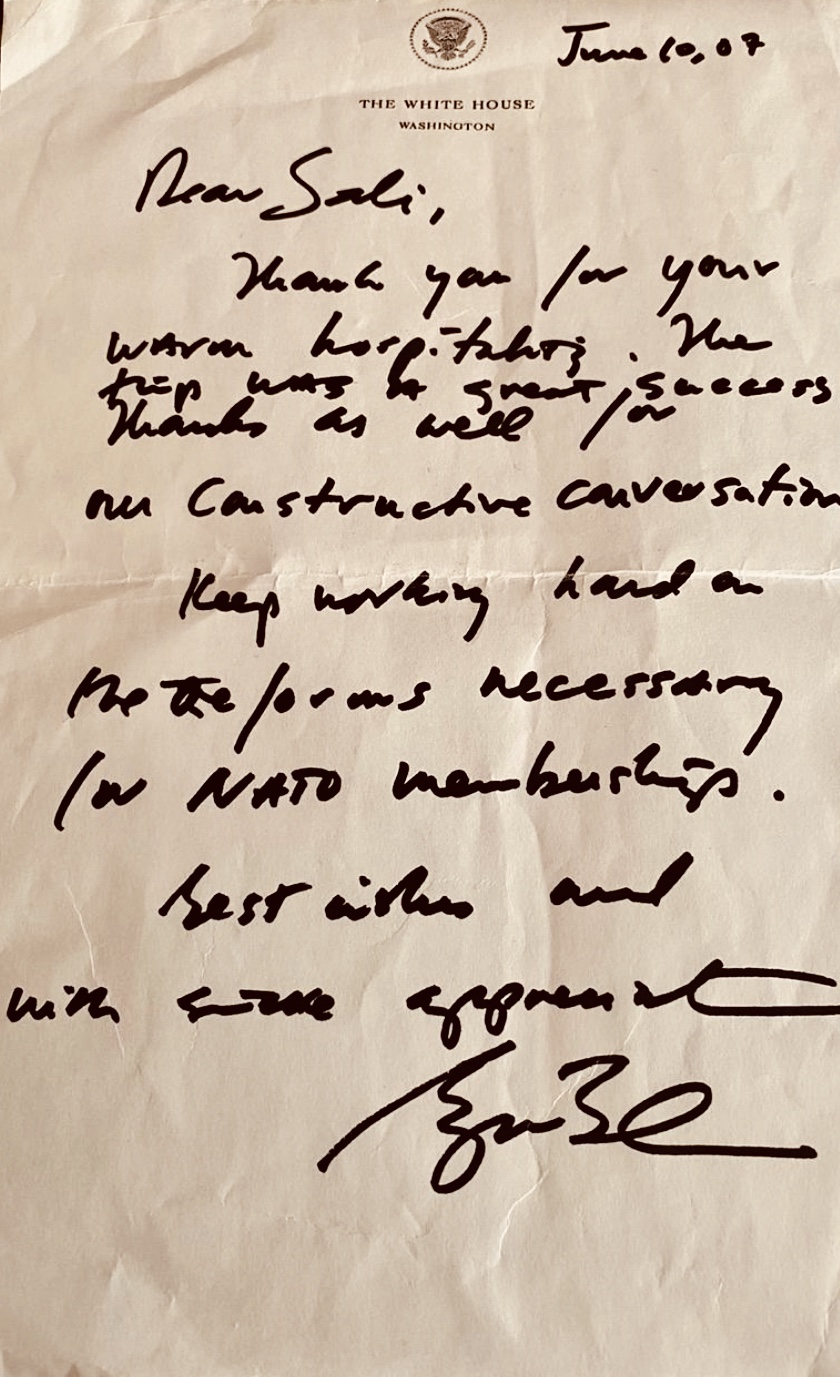 June 10, 07
THE WHITE HOUSE
WASHINGTON
Dear Sali,
Thank you for your
warm hospitality. The
trip was a great success
Thanks as well for
our Constructive conversation
Keep working hard on
the reforms necessary
for NATO membership.
Best wishes and
with sincere appreciation